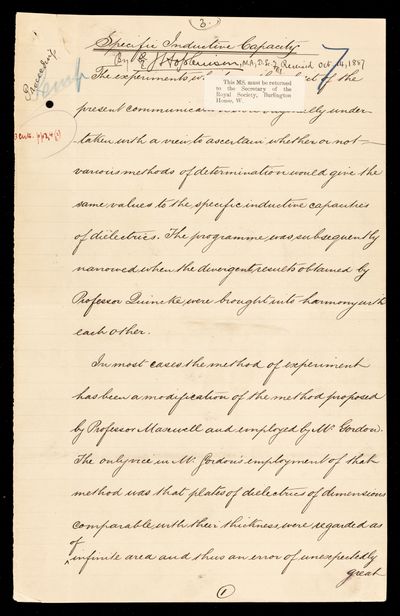 (3.)
Specific Inductive Capacity
By J Hopkinson, M.A., D.Sc. Received Oct. 14, 1887
7
Proceedings
This MS. must be returned
to the Secretary of the
Royal Society, Burlington
House, W.
The experiments of the
present communica originally under-
taken with a view to ascertain whether or not
various methods of determination would give the
same values to the specific inductive capacities
of dielectrics. The programme was subsequently
narrowed when the divergent results obtained by
Professor Quincke were brought into harmony with
each other.
In most cases the method of experiment
has been a modification of the method proposed
by Professor Maxwell and employed by Mr Gordon.
The only vice in Mr Gordon's employment of that
method was that plates of dielectrics of dimensions
comparable with their thickness were regarded as
of
^infinite area and thus an error of unexpectedly
great
(1)